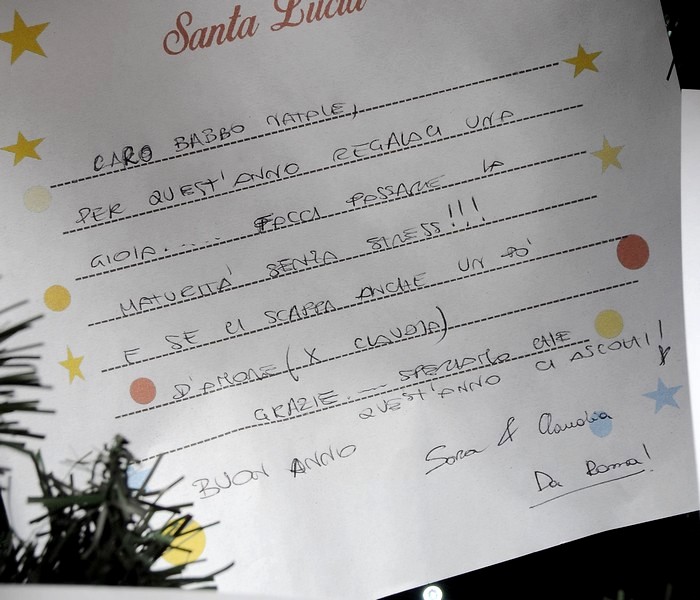 Santa Lucia
CARO BABBO NATALE,
PER QUEST'ANNO REGALACI UNA
GIOIA...... FACCI PASSARE LA
MATURITA' SENZA STRESS!!!
E SE CI SCAPPA ANCHE UN PO'
D'AMORE (X CLAUDIA)
GRAZIE.... SPERIAMO CHE
QUEST'ANNO CI ASCOLTI!!
BUON ANNO
Sara & Claudia
Da Roma!